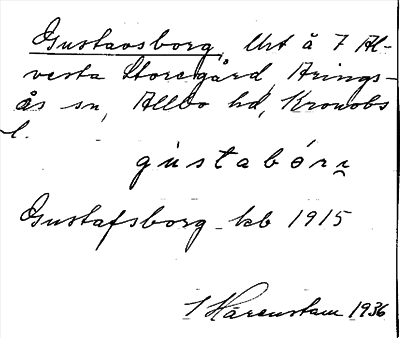 Gustavsborg, Urt å 7 Al-
vesta Storegård, Arings-
ås sn, Allbo hd, Kronobs
l.
gustabórɪ̯
Gustafsborg kb 1915
S Härenstam 1936